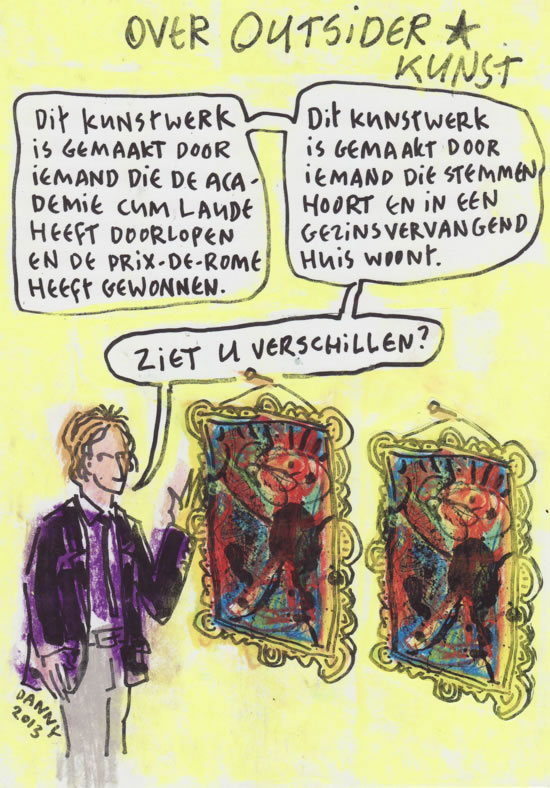 OVER OUTSIDER ★
KUNST
Dit KUNStWERK
is GEMAAKt DOOR
iEMAND DiE DE ACA-
DEMiE CUM LAUDE
HEEFt DOORLOPEN
EN DE PRiX-DE-ROME
HEEFt GEWONNEN.
Dit KUNStWERK
is GEMAAKt DOOR
iEMAND DiE StEMMEN
HOORt EN iN EEN
GEZiNSVERVANGEND
HUiS WOONt.
ZiEt U VERSCHiLLEN?
DANNY
2013